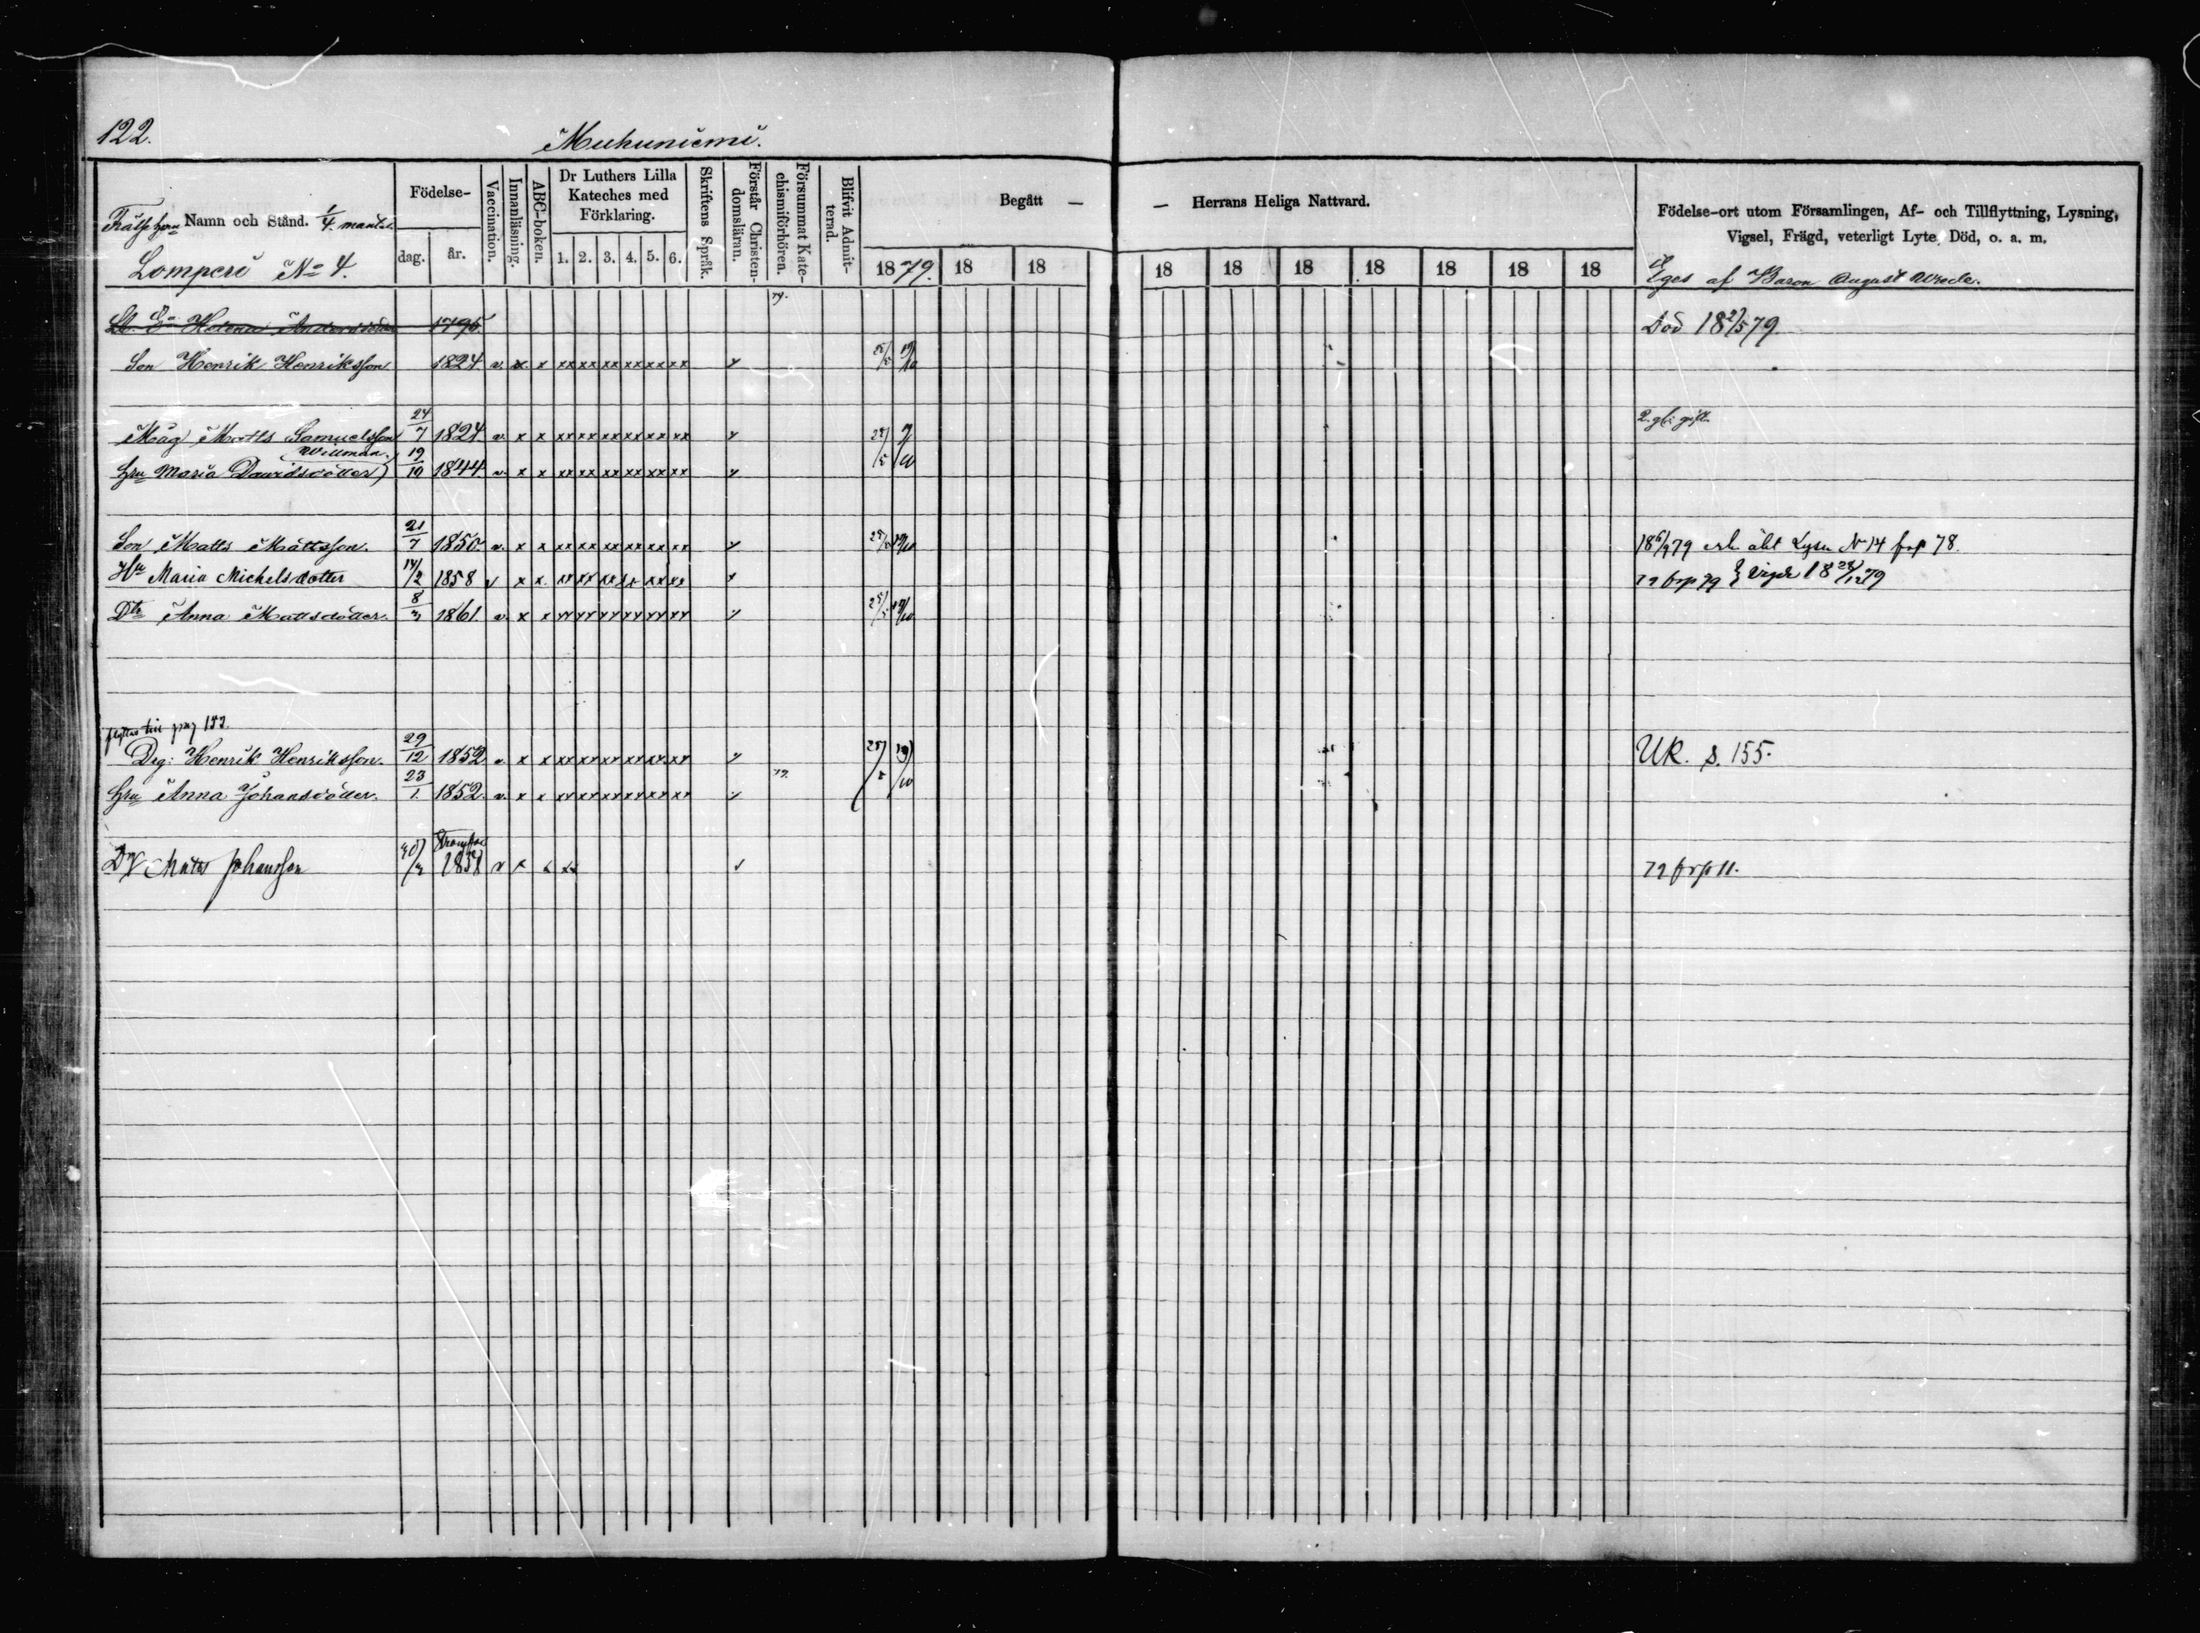 122.
Muhuniemi.
Namn och Stånd. 1/4 mantal.
Lomperi No 4.
Födelse-
dag.
år.
Vaccination.
Innanläsning.
ABC-boken.
Dr Luthers Lilla Kateches med Förklaring.
1. 2. 3. 4. 5. 6.
Skriftens Språk.
Förstår Christen-domsläran.
Försummat Kate-chismiförhören.
Blifvit Admit-terad.
Begått —
— Herrans Heliga Nattvard.
1879. 18 18 18 18 18 18 18 18 18
Födelse-ort utom Församlingen, Af- och Tillflyttning, Lysning, Vigsel, Frägd, veterligt Lyte, Död, o. a. m.
Eges af Baron August Wrede.
Helena Andersdotter 1795 Död 18 2/5 79.
Son Henrik Henriksson 1824. v. x x xx xx xx xx xx xx
Måg Matts Samuelsson 24/7 1824. v. x x xx xx xx xx xx xx 2. g. gift.
Willman.
Hru Maria Davidsdotter 19/10 1844. v. x x xx xx xx xx xx xx
Son Matts Mattsson. 21/7 1850. v. x x xx xx xx xx xx xx No 14 frp 78.
Hu Maria Michelsdotter 14/2 1858 v x x. xx xx xx xx xx xx 79 frp 79
Dtr Anna Mattsdotter. 8/3 1861. v. x x xx xx xx xx xx xx
flyttas till pag 133.
Drg: Henrik Henriksson. 29/12 1852 v. x x xx xx xx xx xx xx UK. s. 155.
Hru Anna Johansdotter. 23/1. 1852. v. x x xx xx xx xx xx xx
Dg Matts Johansson 1858 v x 79 frp 11.